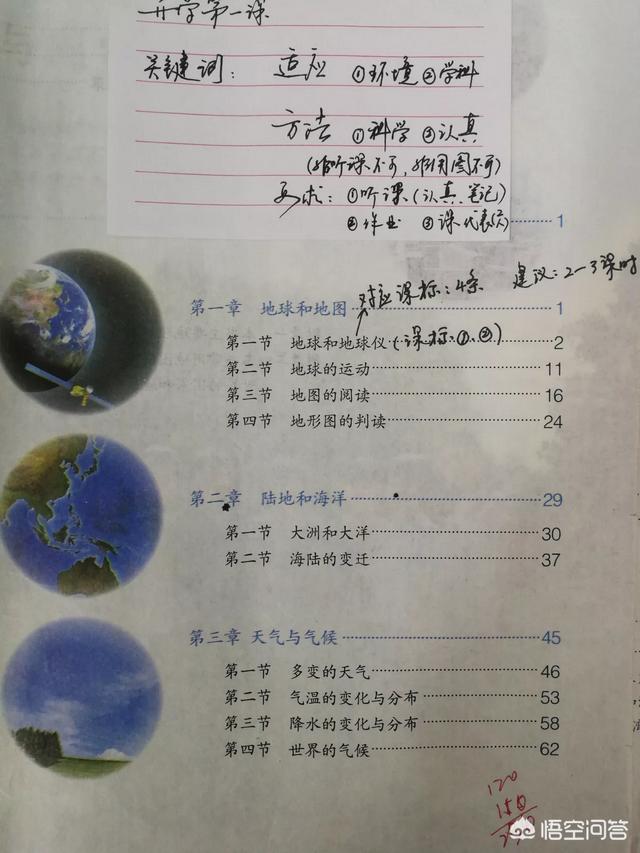 开学第一课
关键词： 适应 ①环境 ②学科
方法 ①科学 ②认真
(非听课不可，非用图不可)
要求：①听课(认真、笔记)
②作业 ③课代表
1
建议：2-3课时
对应课标：4条
第一章 地球和地图 1
第一节 地球和地球仪(课标①、②) 2
第二节 地球的运动 11
第三节 地图的阅读 16
第四节 地形图的判读 24
第二章 陆地和海洋 29
第一节 大洲和大洋 30
第二节 海陆的变迁 37
第三章 天气与气候 45
第一节 多变的天气 46
第二节 气温的变化与分布 53
第三节 降水的变化与分布 58
第四节 世界的气候 62
120
悟空问答